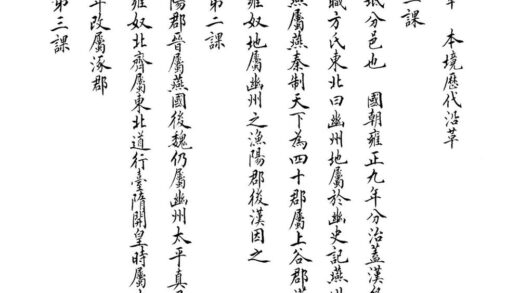 本境歷代沿革
一課
分邑也 國朝雍正九年分治蓋漢
職方氏東北曰幽州地屬於幽史記燕
屬燕秦制天下為四十郡屬上谷郡
雍奴地屬幽州之漁陽郡後漢因之
第二課
陽郡晉屬燕國後魏仍屬幽州太平真
雍奴北齊屬東北道行臺隋開皇時屬
年改屬涿郡
第三課